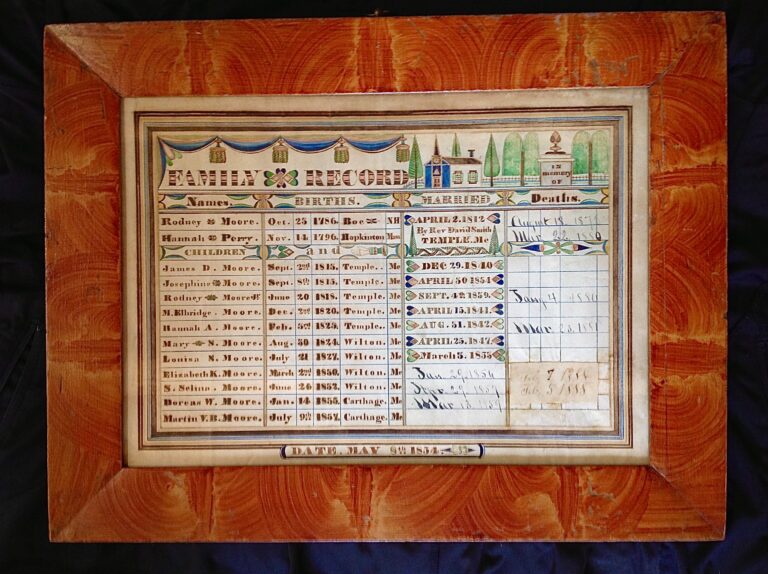 FAMILY RECORD
IN memory OF
Names. BIRTHS. MARRIED Deaths.
Rodney Moore. Oct. 25 1786. Boe NH APRIL 2. 1812 18
Hannah Perry. Nov. 14 1796. Hopkinton Mass By Rev David Smith Mar 22
CHILDREN and TEMPLE. Me
James D. Moore. Sept. 1813. Temple. Me DEC 29. 1840
Josephine Moore. Sept. 1815. Temple. Me APRIL 30 1854
Rodney Moore Jr June 20 1818. Temple. Me SEPT. 4th 1839. 4 1880
M. Elbridge Moore. Dec. 1820. Temple. Me APRIL 15. 1841.
Hannah A. Moore. Feb. 1823. Temple. Me AUG. 31. 1842. Mar
Mary S. Moore. Aug. 30 1824. Wilton. Me APRIL 25. 1847.
Louisa N. Moore. July 21 1827. Wilton. Me March 5. 1853
Elizabeth K. Moore. March 1830. Wilton. Me Jan 29 1854
S. Selina. Moore. June 24 1832. Wilton. Me 29 1857
Dorcas W. Moore. Jan. 14 1835. Carthage. Me Mar 18
Martin V.B. Moore. July 9th 1837. Carthage. Me
DATE. MAY 1854.